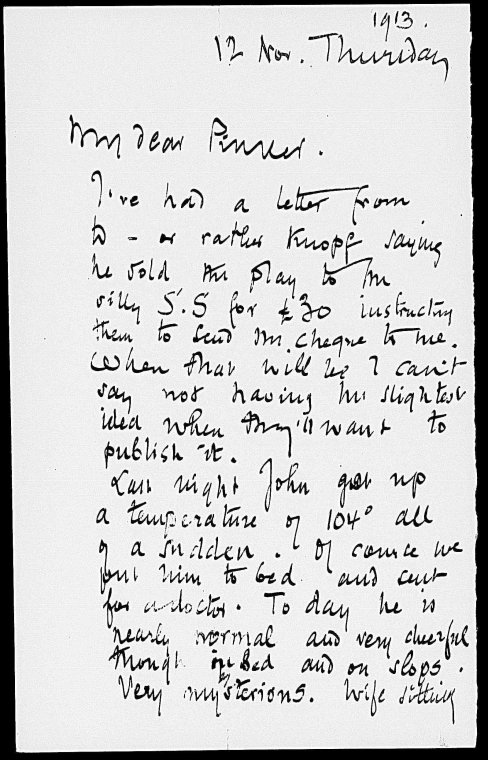 1913.
12 Nov. Thursday
My dear Pinker.
I've had a letter from
to – or rather Knopf saying
he sold the play to the
silly S.S for £30 instructing
them to send the cheque to me.
When that will be I can't
say not having the slightest
idea when they'll want to
publish it.
Last night John got up
a temperature of 104° all
of a sudden. Of course we
put him to bed and sent
for a doctor. To day he is
nearly normal and very cheerful
though in bed and on slops.
Very mysterious. Wife sitting